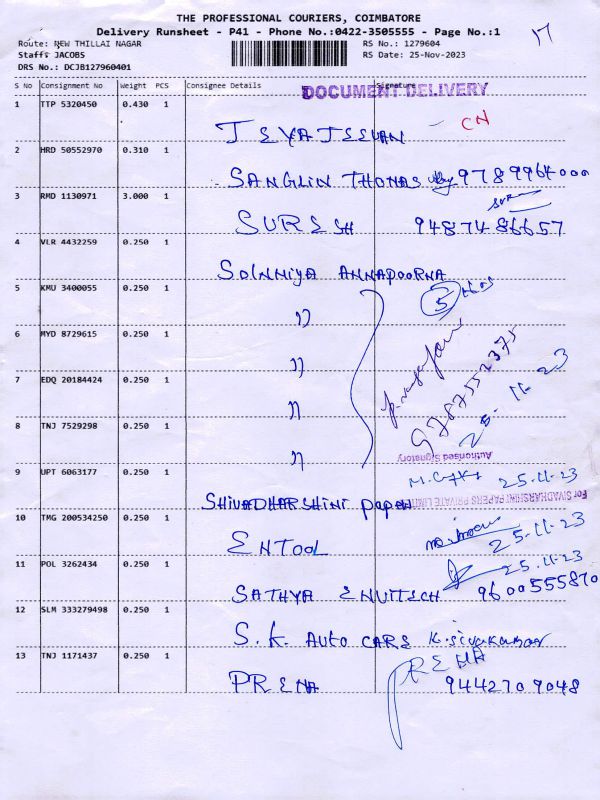 THE PROFESSIONAL COURIERS, COIMBATORE
Delivery Runsheet - P41 - Phone No.:0422-3505555 - Page No.:1
17
Route: NEW THILLAI NAGAR
RS No.: 1279604
Staff: JACOBS
RS Date: 25-Nov-2023
DRS No.: DCJB127960401
S No Consignment No Weight PCS Consignee Details Signature
DOCUMENT DELIVERY
1 TTP 5320450 0.430 1
JEYAJEEVAN CN
2 HRD 50552970 0.310 1
SANGLIN THOMAS 9789964000
3 RMD 1130971 3.000 1
SURESH 9487486657
4 VLR 4432259 0.250 1
ANNAPOORNA
5 KMU 3400055 0.250 1
5
"
6 MYD 8729615 0.250 1
"
9787552375
25-11-23
7 EDQ 20184424 0.250 1
"
8 TNJ 7529298 0.250 1
"
Authorised Signatory
9 UPT 6063177 0.250 1
25-11-23
SHIVADHARSHINI PAPER
For SIVADHARSHINI PAPERS PRIVATE LIMITED
10 TMG 200534250 0.250 1
ENTOOL
25-11-23
11 POL 3262434 0.250 1
25-11-23
SATHYA 9600555870
12 SLM 333279498 0.250 1
S.K. AUTO CARS K. Sivakumar
13 TNJ 1171437 0.250 1
PREMA
9442709048